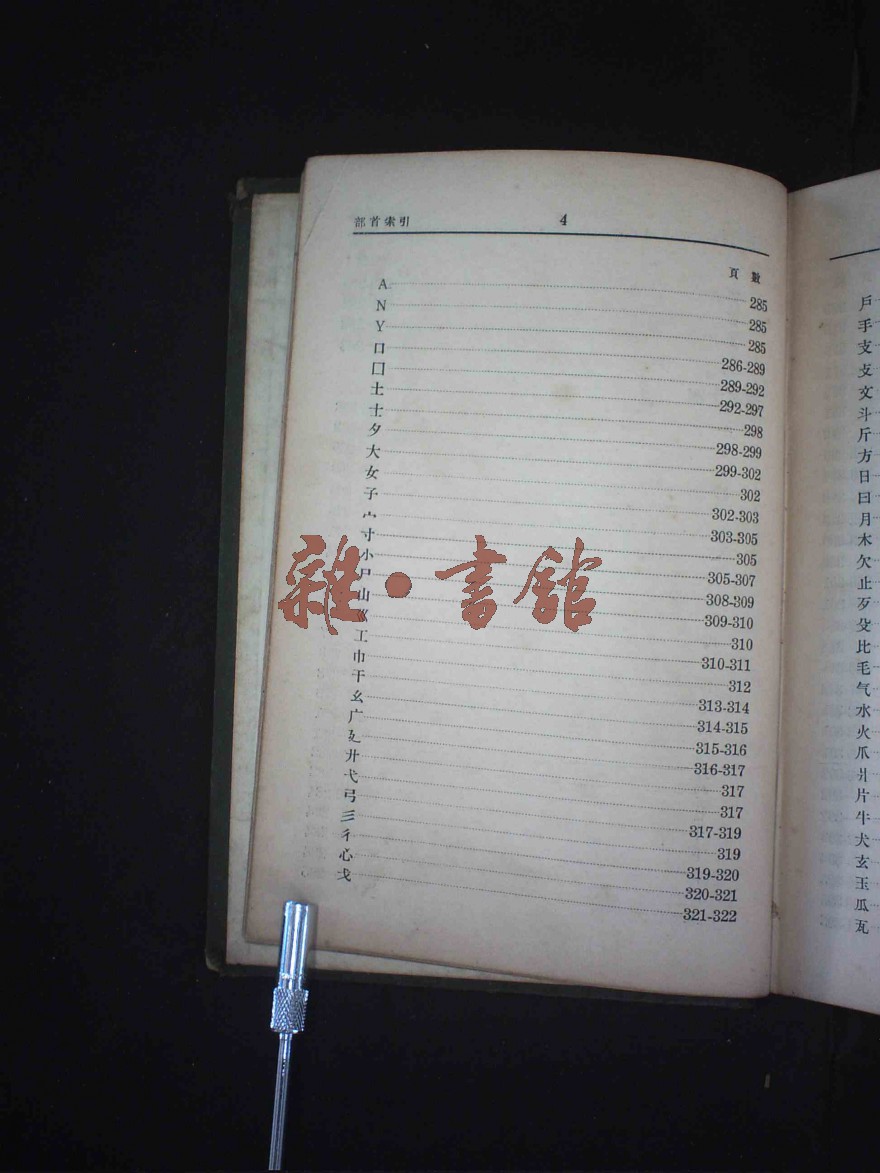 部首索引 4
頁數
A 285
N 285
Y 285
口 286-289
囗 289-292
土 292-297
士 298
夕 298-299
大 299-302
女 302
子 302-303
宀 303-305
寸 305
小 305-307
尸 308-309
山 309-310
巛 310
工 310-311
巾 312
干 313-314
幺 314-315
广 315-316
廴 316-317
廾 317
弋 317
弓 317-319
彡 319
彳 319-320
心 320-321
戈 321-322
雜·書館
戶
手
支
攴
文
斗
斤
方
日
曰
月
木
欠
止
歹
殳
比
毛
气
水
火
爪
爿
片
牛
犬
玄
玉
瓜
瓦